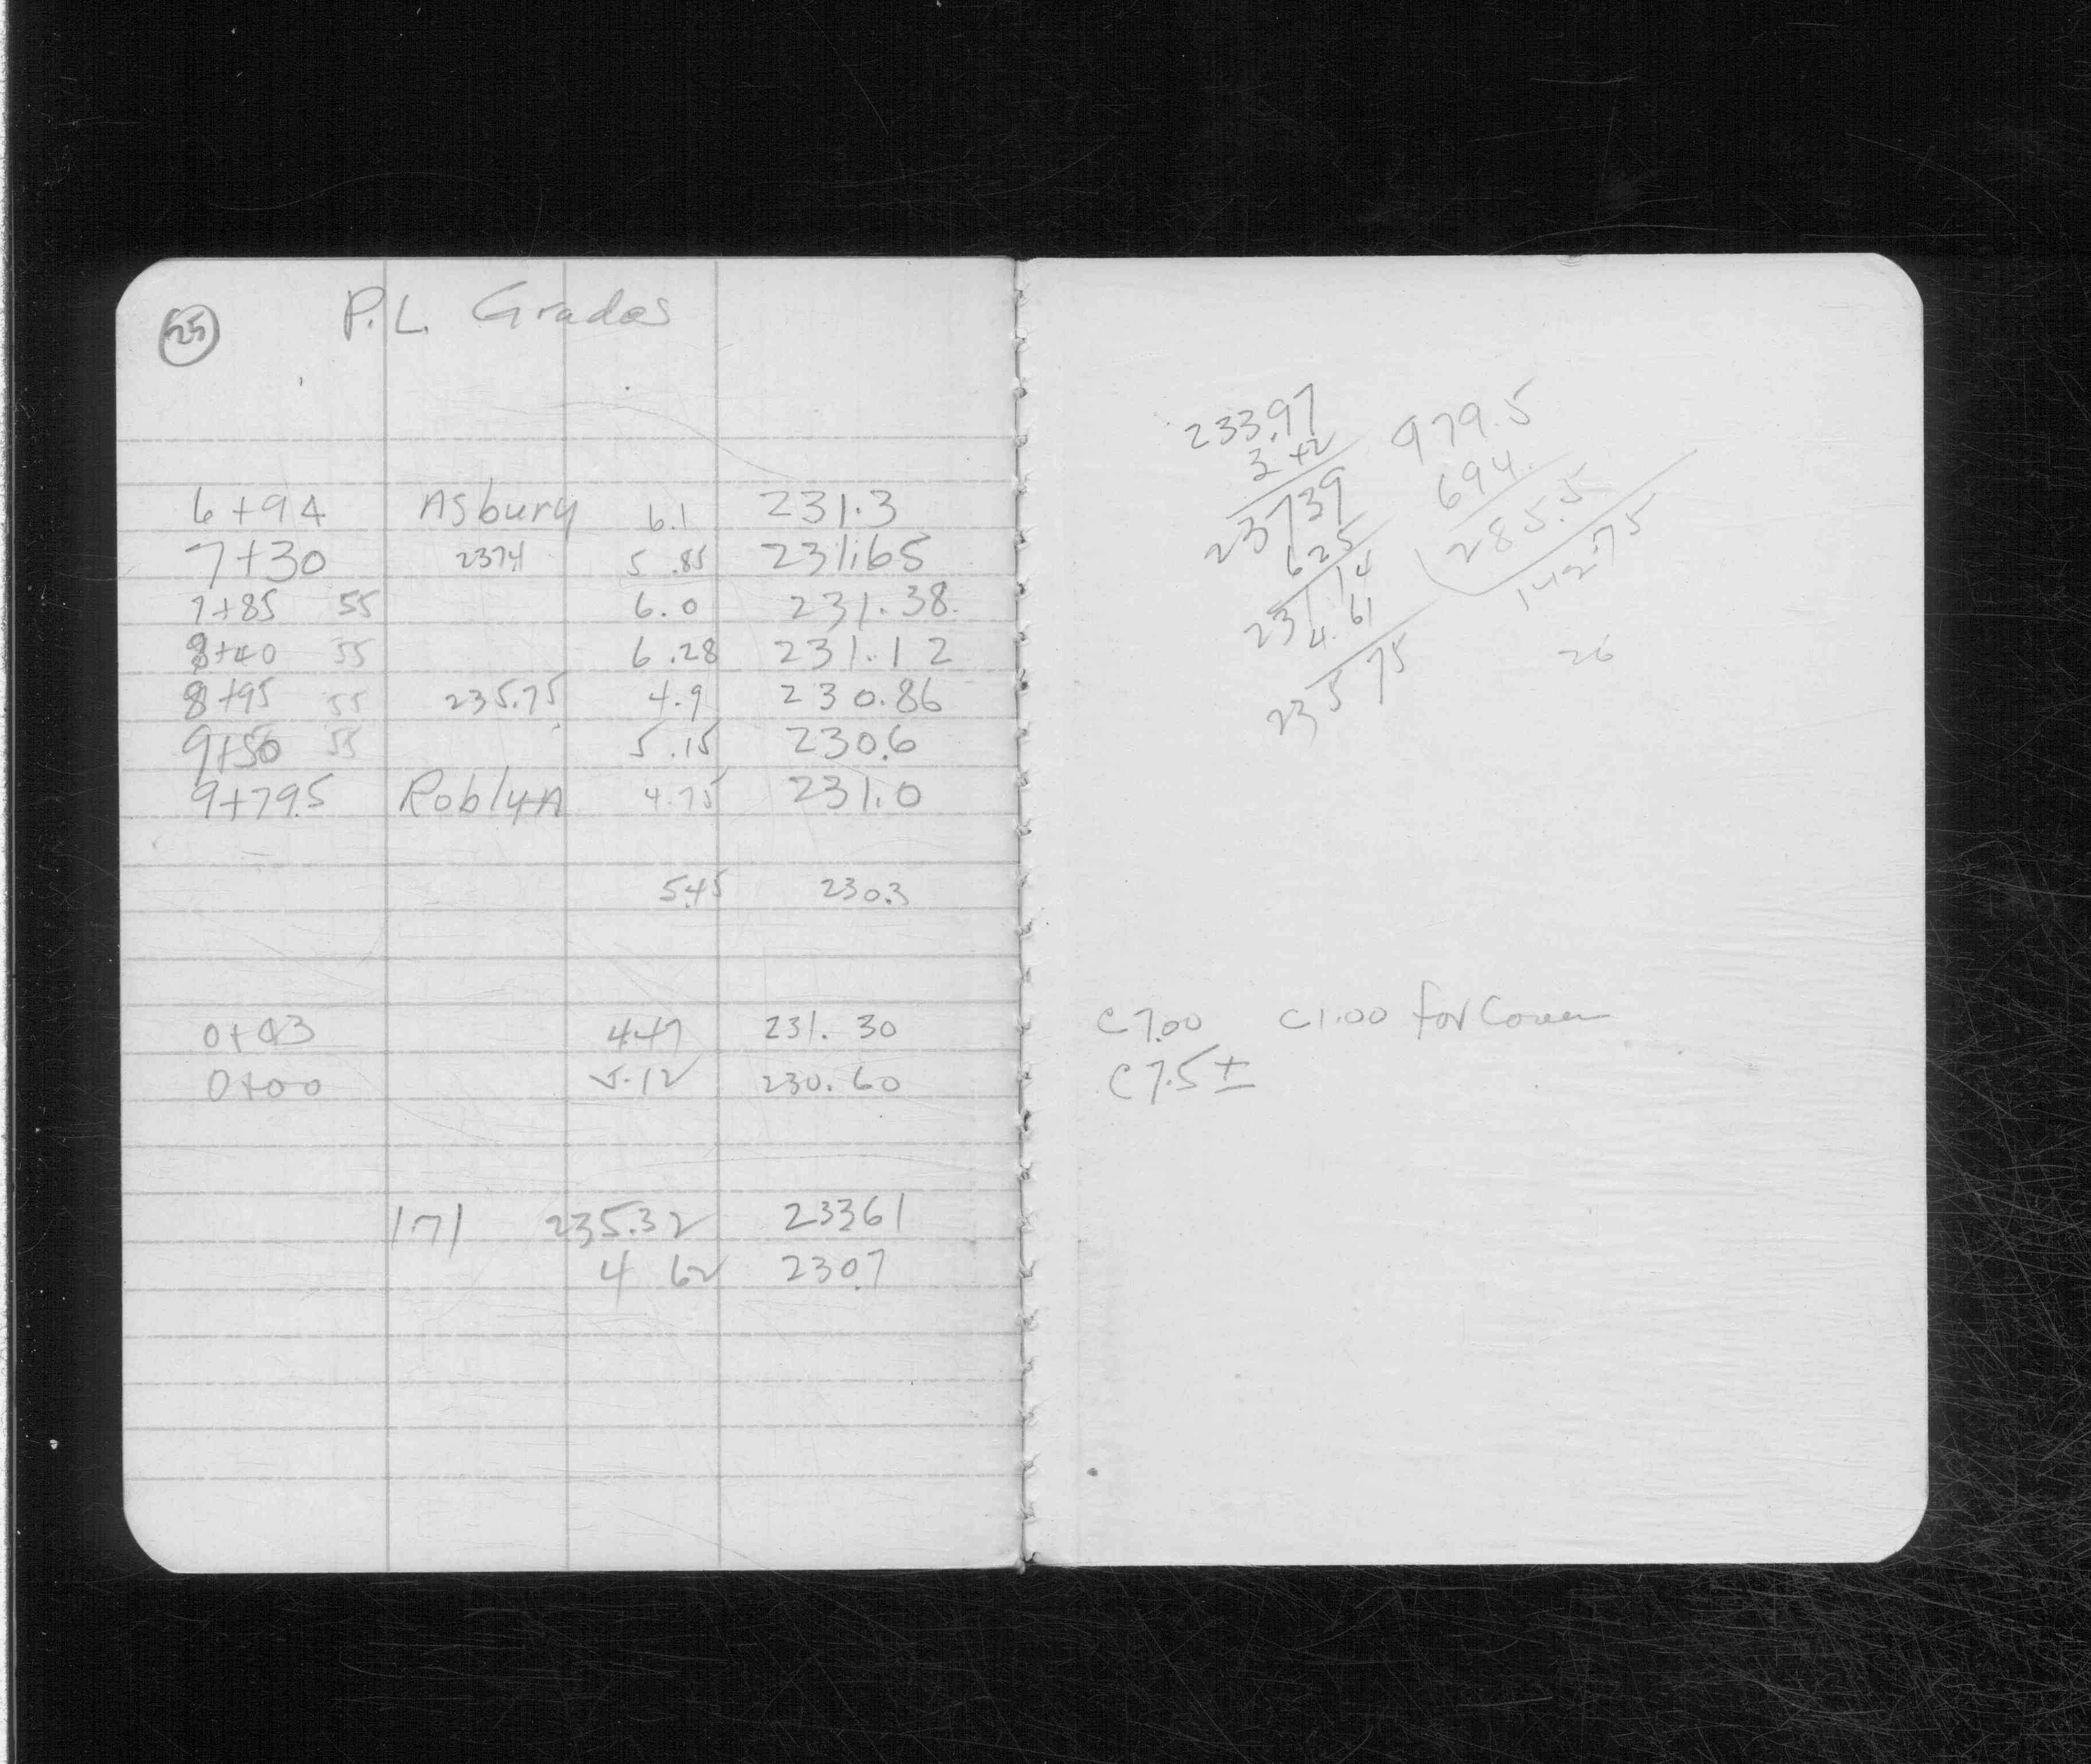 25 P.L. Grades
6+94 Asbury 6.1 231.3
7+30 237.4 5.85 231.65
7+85 55 6.0 231.38
8+40 55 6.28 231.12
8+95 55 235.75 4.9 230.86
9+50 55 5.15 230.6
9+79.5 Roblyn 4.75 231.0
5.45 230.3
0+03 4.47 231.30
0+00 5.12 230.60
171 235.32 233.61
4 62 230.7
233.97
3 42
237 39
6 25
231 14
4.61
235 75
979.5
694.
285.5
142.75
26
C7.00 C1.00 for Cover
C7.5±